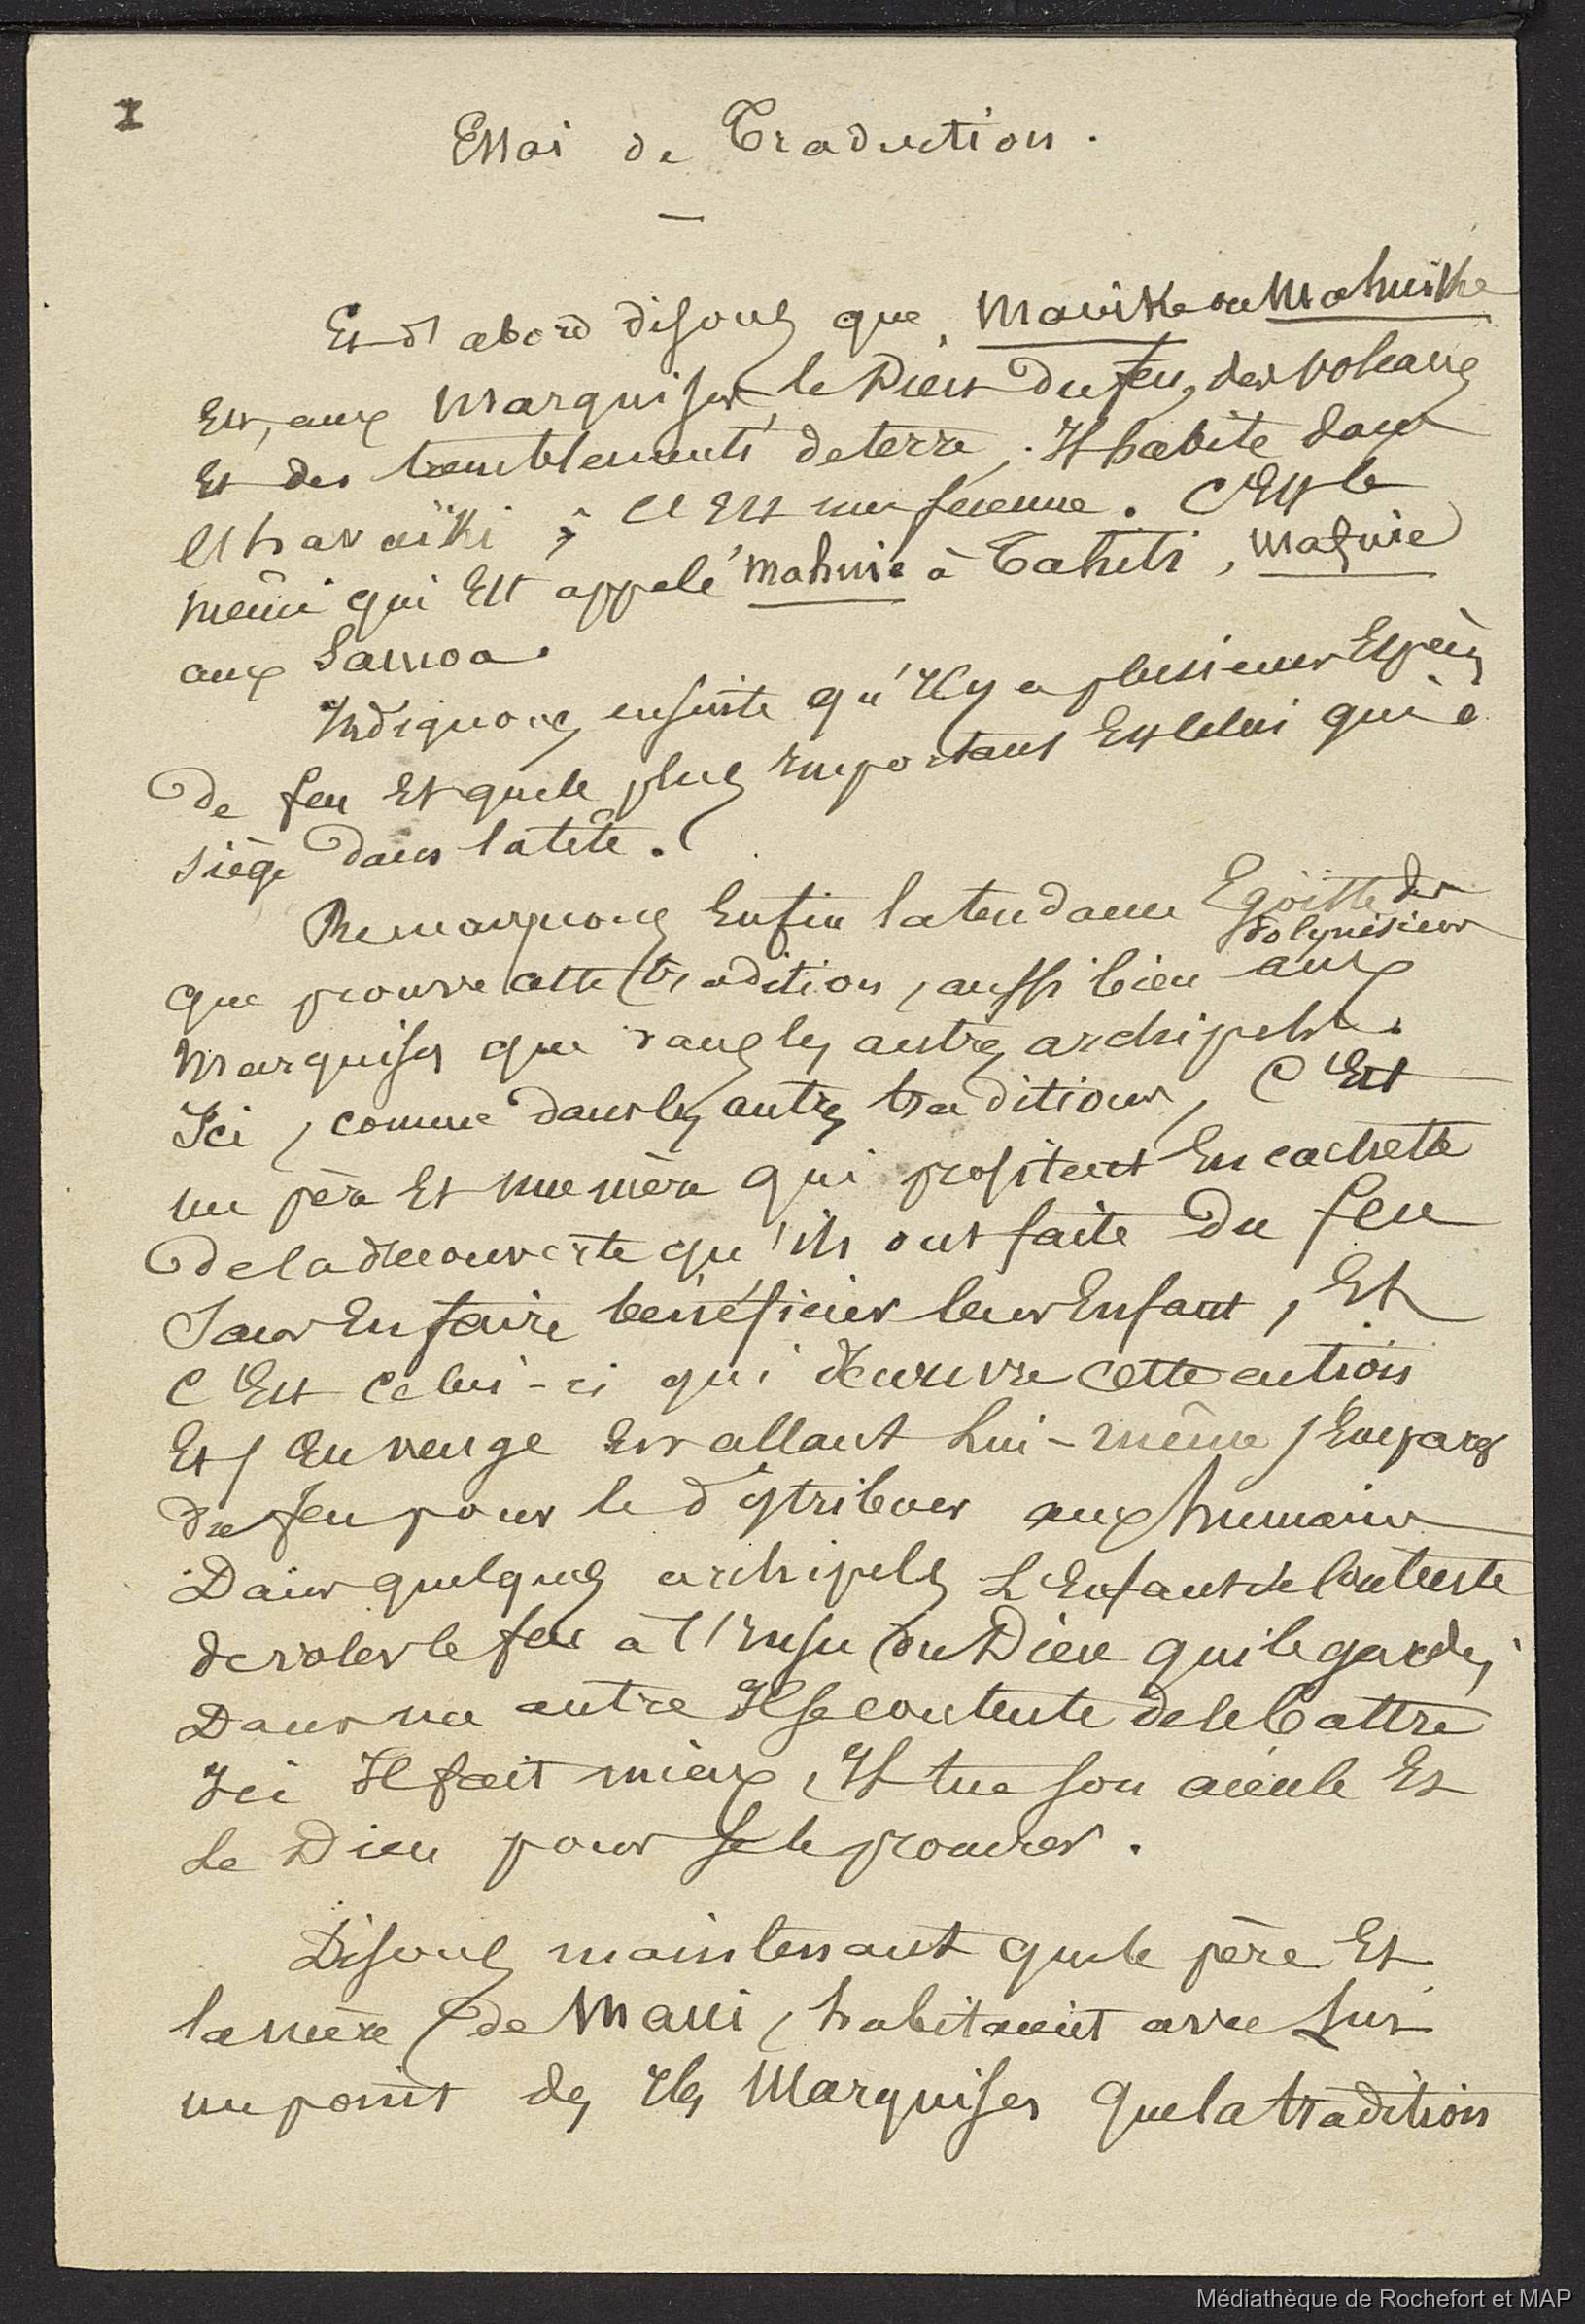 1
Essai de Traduction.
Et d'abord disons que Mauike ou Mahuike
Est, aux Marquises, le Dieu du feu, des volcans
Et des tremblements de terre. Il habite dans
Et Est une femme. C'Est le
même qui Est appelé Mahuie à Tahiti, Mafuie
aux Samoa.
Indiquons ensuite qu'Il y a plusieurs Espèces
De feu Et que le plus Important Est celui qui a
siège dans la tête.
Remarquons Enfin la tendance Egoïste des
Polynésiens
que prouve cette tradition, aussi bien aux
Marquises que dans les autres archipels.
Ici, comme dans les autres traditions, C'Est
un père Et une mère qui profitent En cachette
De la découverte qu'ils ont faite Du feu
Sans En faire bénéficier leur Enfant, Et
C'Est celui-ci qui découvre cette action
Et s'En venge En allant Lui-même s'Emparer
du feu pour le distribuer aux humains
Dans quelques archipels L'Enfant se Contente
de voler le feu à l'Insu du Dieu qui le garde,
Dans un autre Il se contente de le battre
Ici Il fait mieux, Il tue son aïeule Et
Le Dieu pour se le procurer.
Disons maintenant que le père Et
la mère de Maui, habitaient avec lui
un point des Iles Marquises que la tradition
Médiathèque de Rochefort et MAP